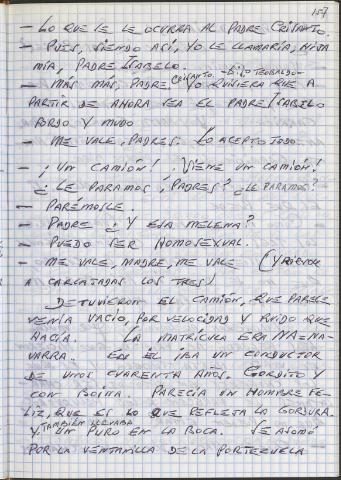 157
- LO QUE SE LE OCURRA AL PADRE CRISANTO.
- PUES, SIENDO ASÍ, YO LE LLAMARÍA, HIJA
MÍA, PADRE ISABELO.
- MÁS MÁS, PADRE CRISANTO - DIJO TEOBALDO - YO QUISIERA QUE A
PARTIR DE AHORA SEA EL PADRE ISABELO
SORDO Y MUDO
- ME VALE, PADRES. LO ACEPTO TODO.
- ¡UN CAMIÓN! ¡VIENE UN CAMIÓN!
¿LE PARAMOS, PADRES? ¿LE PARAMOS?
- PARÉMOSLE.
- PADRE ¿Y ESA MELENA?
- PUEDO SER HOMOSEXUAL.
- ME VALE, MADRE, ME VALE (Y RIERON
A CARCAJADAS LOS TRES)
DETUVIERON EL CAMIÓN, QUE PARECE
VENÍA VACÍO, POR VELOCIDAD Y RUIDO QUE
HACÍA. LA MATRÍCULA ERA NA=NA-
VARRA. EN ÉL IBA UN CONDUCTOR
DE UNOS CUARENTA AÑOS. GORDITO Y
CON BOINA. PARECÍA UN HOMBRE FE-
LIZ, QUE ES LO QUE REFLEJA LA GORDURA.
Y, TAMBIÉN LLEVABA UN PURO EN LA BOCA. SE ASOMÓ
POR LA VENTANILLA DE LA PORTEZUELA